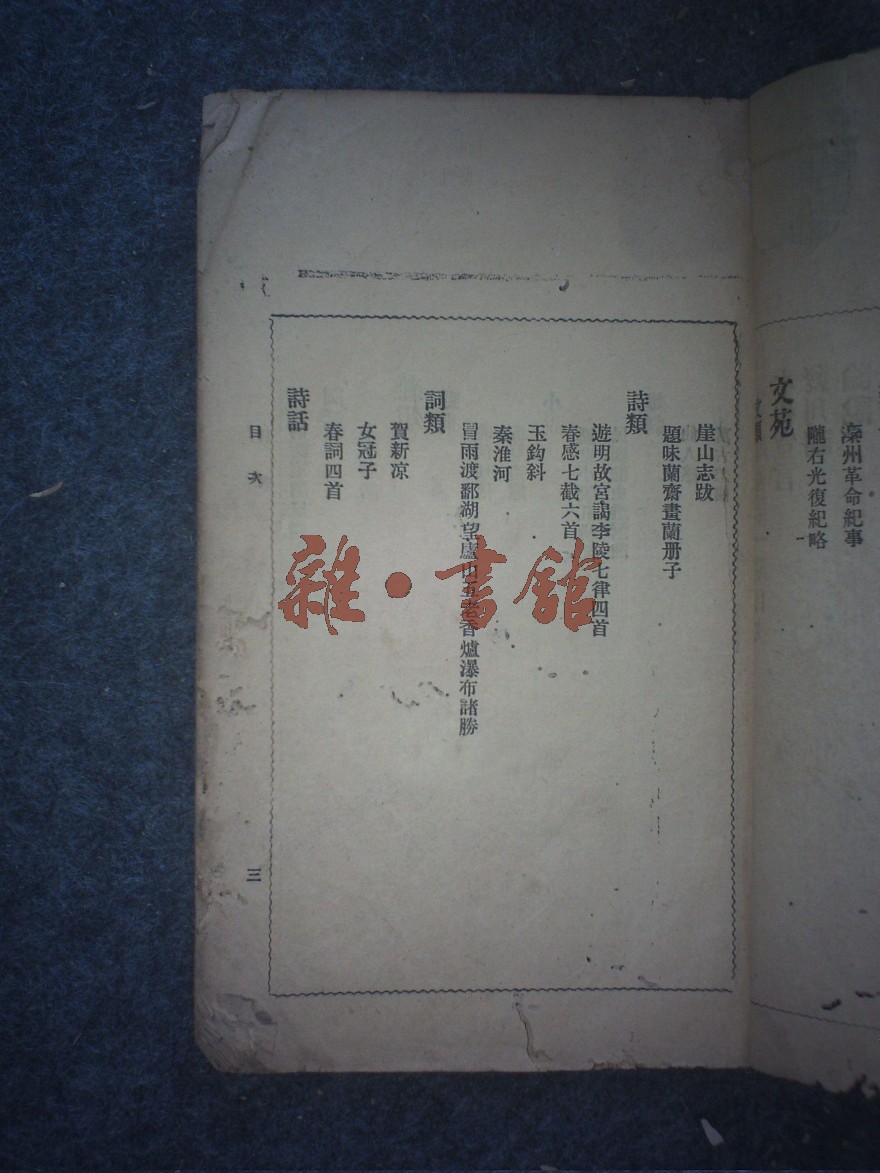 秦州革命紀事
隴右光復紀略
文苑
文類
崖山志跋
題味蘭齋畫蘭册子
詩類
遊明故宮謁李陵七律四首
春感七截六首
玉鈎斜
秦淮河
詞類
冒雨渡鄱湖望廬山五老香爐瀑布諸勝
賀新凉
女冠子
春詞四首
詩話
目次
三
雜·書館